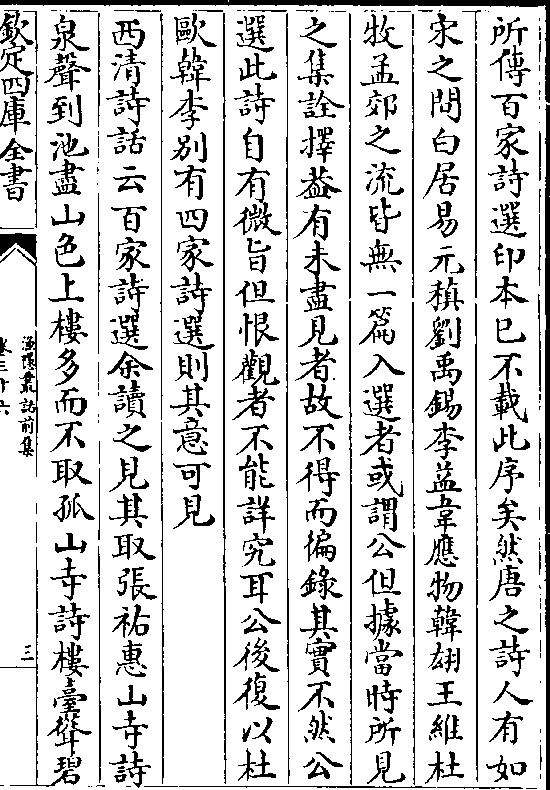 所傳百家詩選印本已不載此序矣然唐之詩人有如
宋之問白居易元稹劉禹錫李益韋應物韓翃王維杜
牧孟郊之流皆無一篇入選者或謂公但據當時所見
之集詮擇葢有未盡見者故不得而徧錄其實不然公
選此詩自有微旨但恨觀者不能詳究耳公後復以杜
歐韓李别有四家詩選則其意可見
西清詩話云百家詩選余讀之見其取張祐惠山寺詩
泉聲到池盡山色上樓多而不取孤山寺詩樓臺聳碧
欽定四庫全書
漁隱叢話前集
卷三十六
三